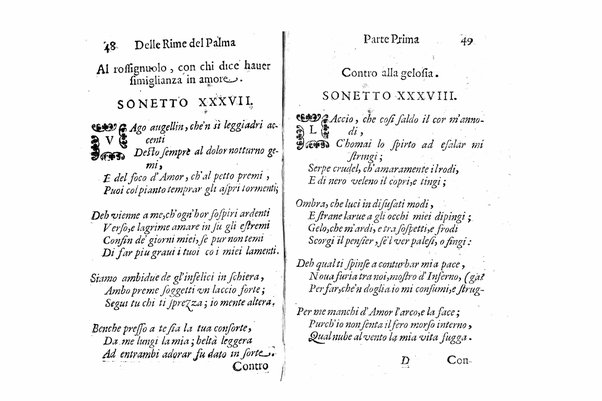 48 Delle Rime del Palma
Al rossignuolo, con chi dice hauer
simiglianza in amore.
SONETTO XXXVII.
VAgo augellin, che'n sì leggiadri ac
centi
Desto sempre al dolor notturno ge-
mi,
E del foco d'Amor, ch'al petto premi,
Puoi col pianto temprar gli aspri tormenti;
Deh vienne a me, ch'ogn'hor sospiri ardenti
Verso, e lagrime amare in su gli estremi
Confin de' giorni miei, se pur non temi
Di far piu graui i tuoi co i miei lamenti.
Siamo ambidue de gl'infelici in schiera,
Ambo preme soggetti vn laccio forte;
Segui tu chi ti sprezza; io mente altera.
Benche presso a te sia la tua consorte,
Da me lungi la mia; beltà leggera
Ad entrambi adorar fu dato in sorte.
Contro
Parte Prima 49
Contro alla gelosia.
SONETTO XXXVIII.
LAccio, che così saldo il cor m'anno-
di,
Ch'omai lo spirto ad esalar mi
stringi;
Serpe crudel, ch'amaramente il rodi,
E di nero veleno il copri, e tingi;
Ombra, che luci in disusati modi,
E strane larue a gli occhi miei dipingi;
Gelo, che m'ardi, e tra sospetti, e frodi
Scorgi il pensier, s'è'l ver palesi, o fingi:
Deh qual ti spinse a conturbar mia pace,
Noua furia tra noi, mostro d'Inferno, (ga?
Per far, che'n doglia io mi consumi, e strug-
Per me manchi d'Amor l'arco, e la face;
Purch'io non senta il fero morso interno,
Qual nube al vento la mia vita fugga.
D Con-